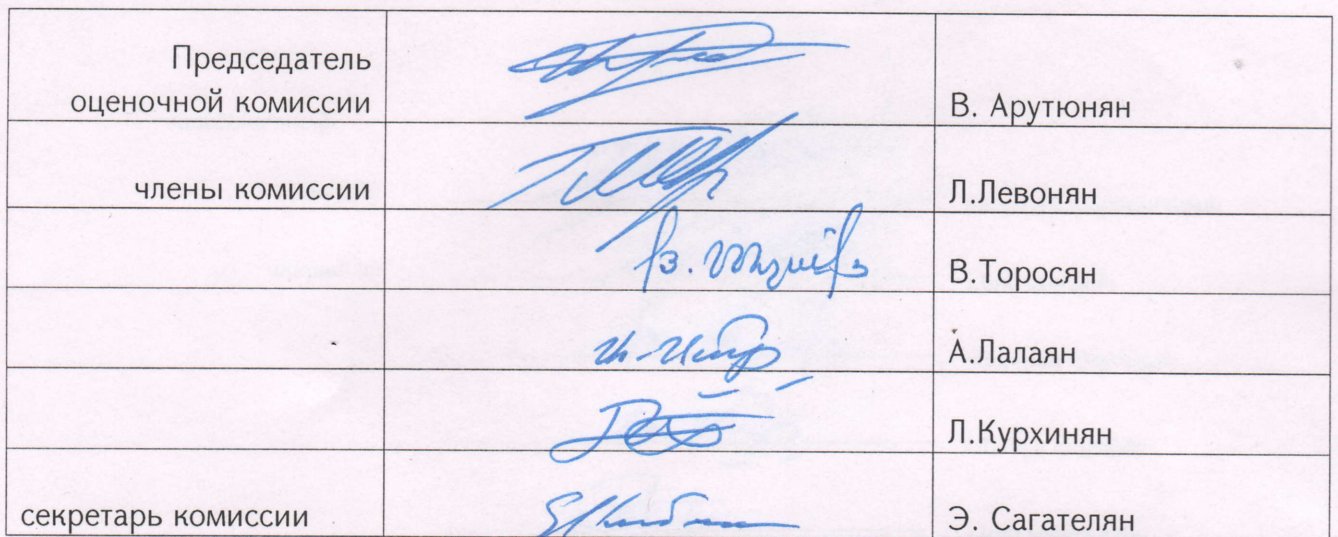 Председатель
оценочной комиссии
В. Арутюнян
члены комиссии
Л.Левонян
В.Торосян
А.Лалаян
Л.Курхинян
секретарь комиссии
Э. Сагателян